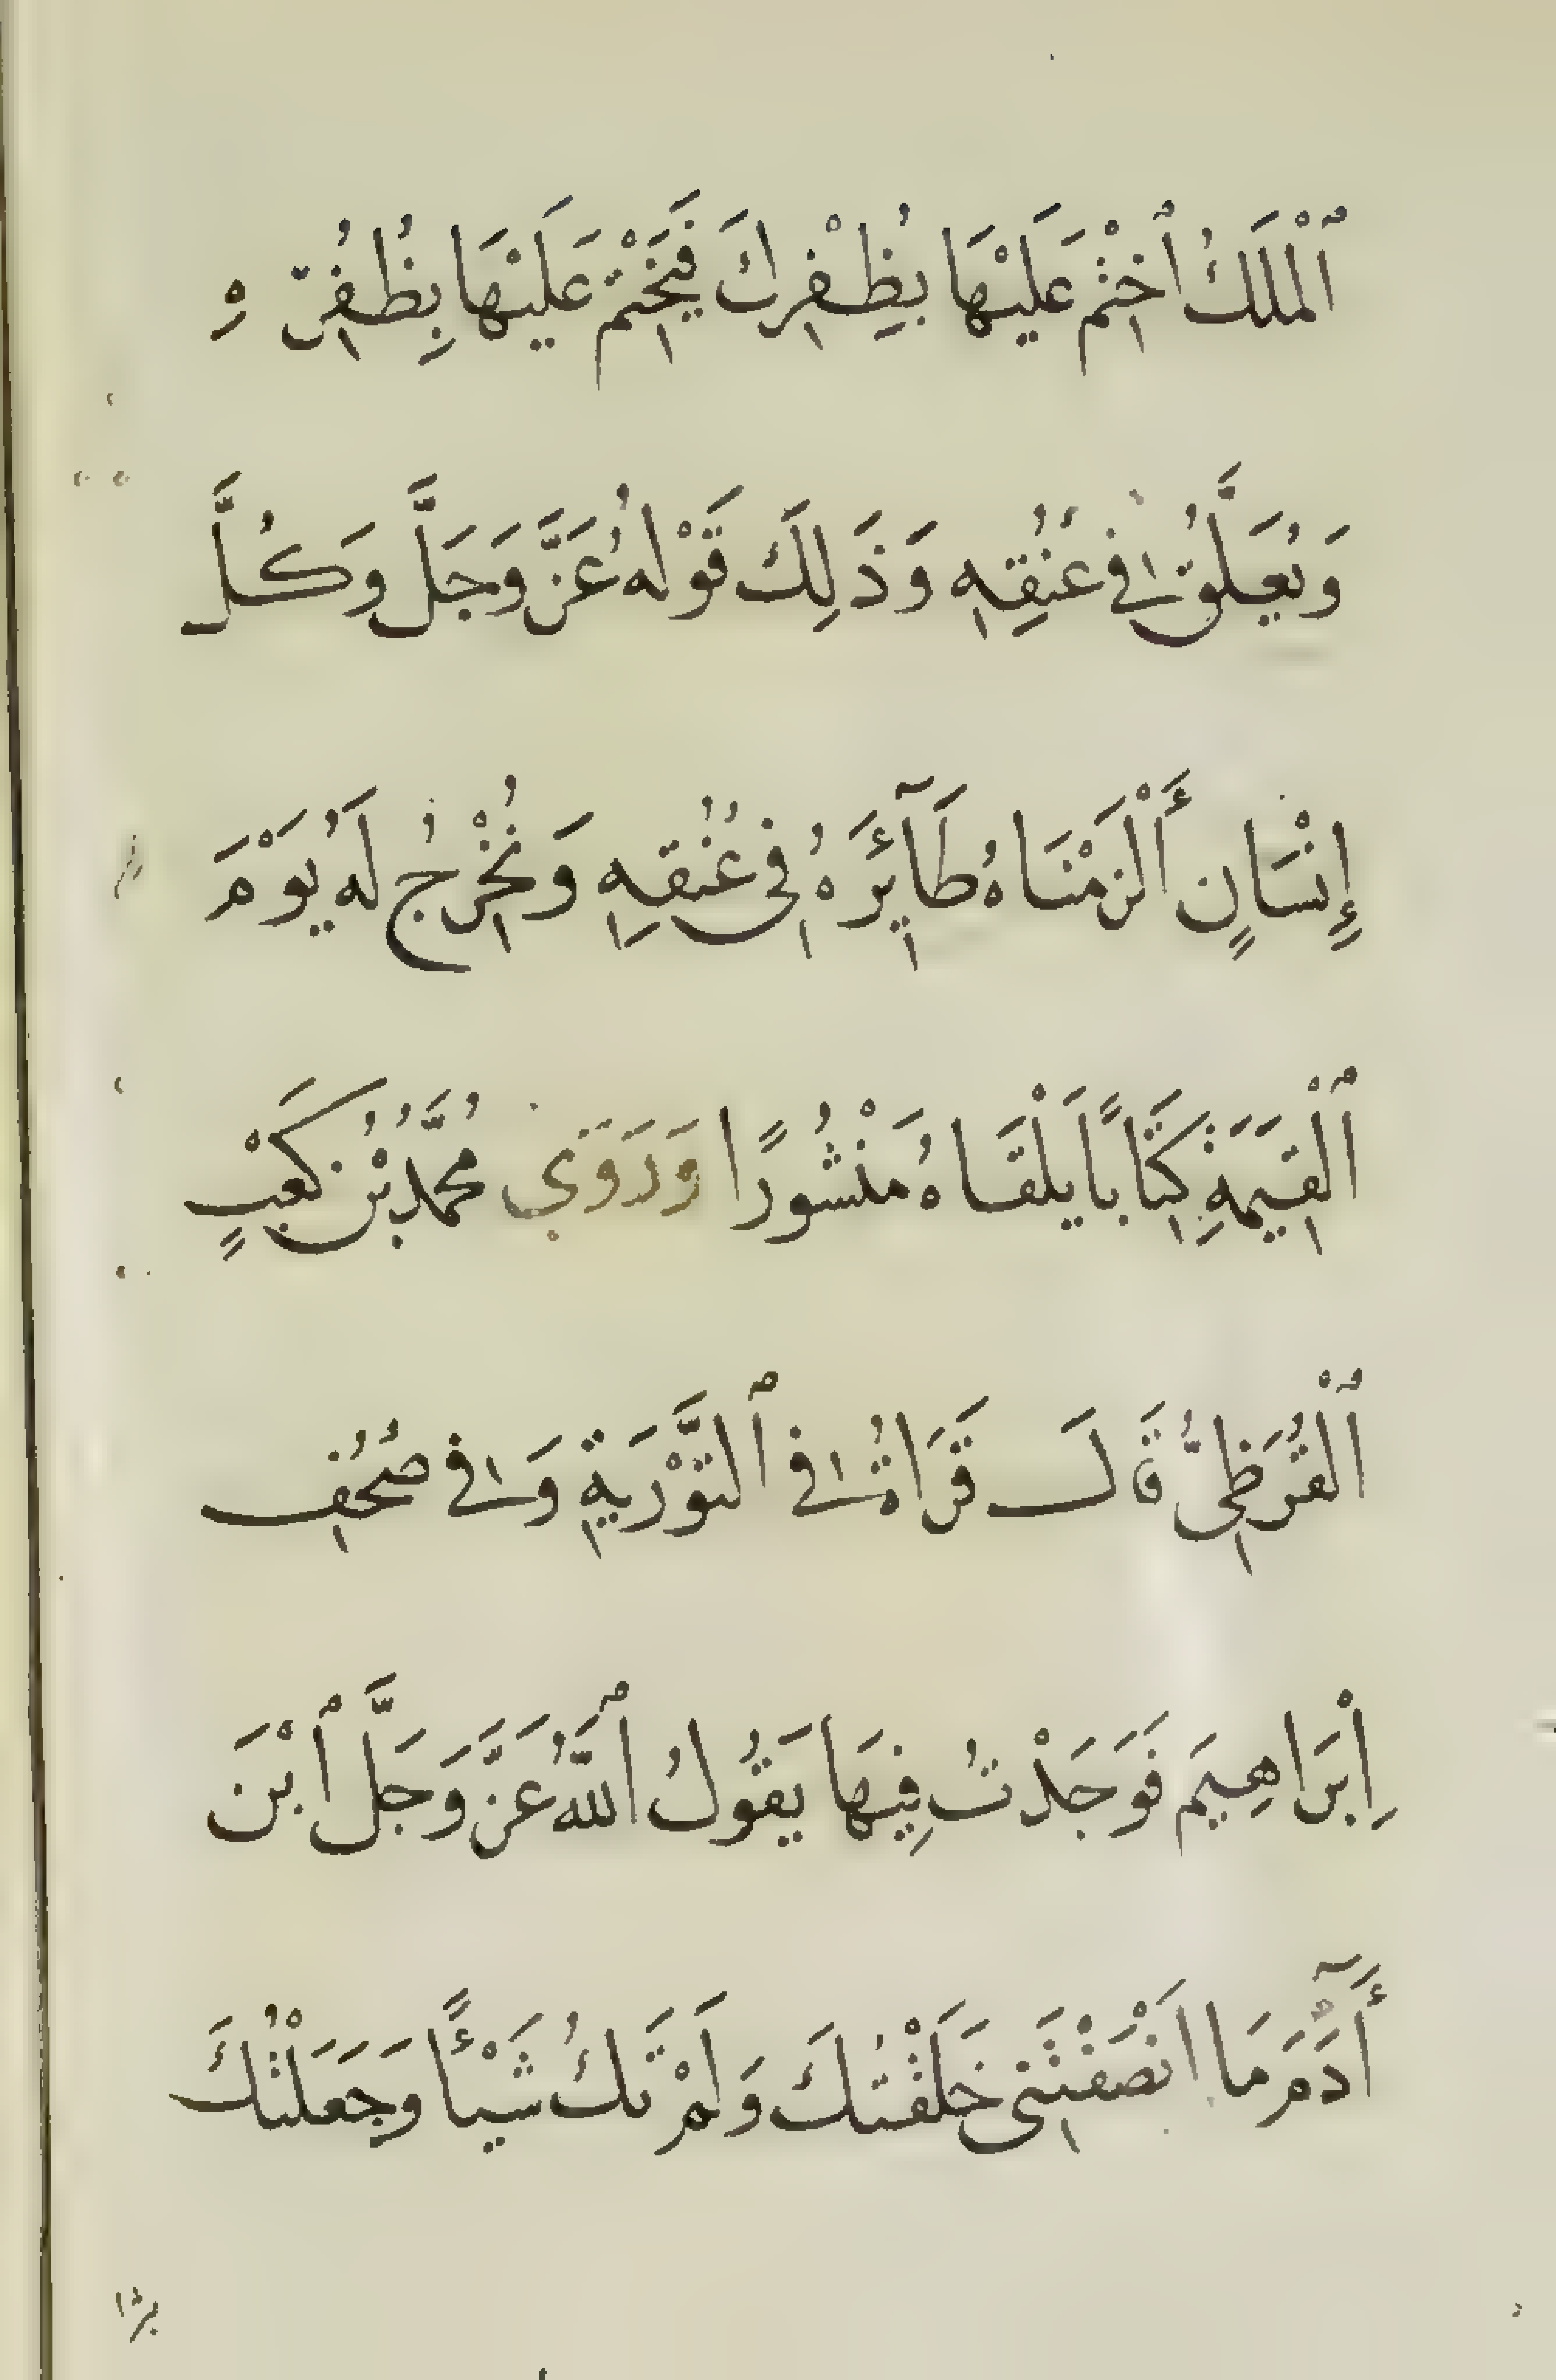 ٱلْمَلَكُ ٱخْتِمْ عَلَيْهَا بِظُفْرِكَ فَيَخْتِمُ عَلَيْهَا بِظُفُرِهِ
وَيُعَلَّقُ فِي عُنُقِهِ وَذَلِكَ قَوْلُهُ عَزَّ وَجَلَّ وَكُلَّ
إِنْسَانٍ أَلْزَمْنَاهُ طَآئِرَهُ فِي عُنُقِهِ وَنُخْرِجُ لَهُ يَوْمَ
ٱلْقِيَمَةِ كِتَاباً يَلْقَاهُ مَنْشُورًا وَرَوَى مُحَمَّدُ بْنُ كَعْبٍ
ٱلْقُرَظِيُّ قَالَ قَرَاتُ فِي ٱلتَّوْرَيةِ وَفِي صُحُفِ
اِبْرَاهِيمَ فَوَجَدْتُ فِيهَا يَقُولُ ٱللَّهُ عَزَّ وَجَلَّ ٱبْنَ
أَدَمَ مَا اَنْصَفْتَنِي خَلَقْتُكَ وَلَمْ تَكُ شَيْئًا وَجَعَلْتُكَ